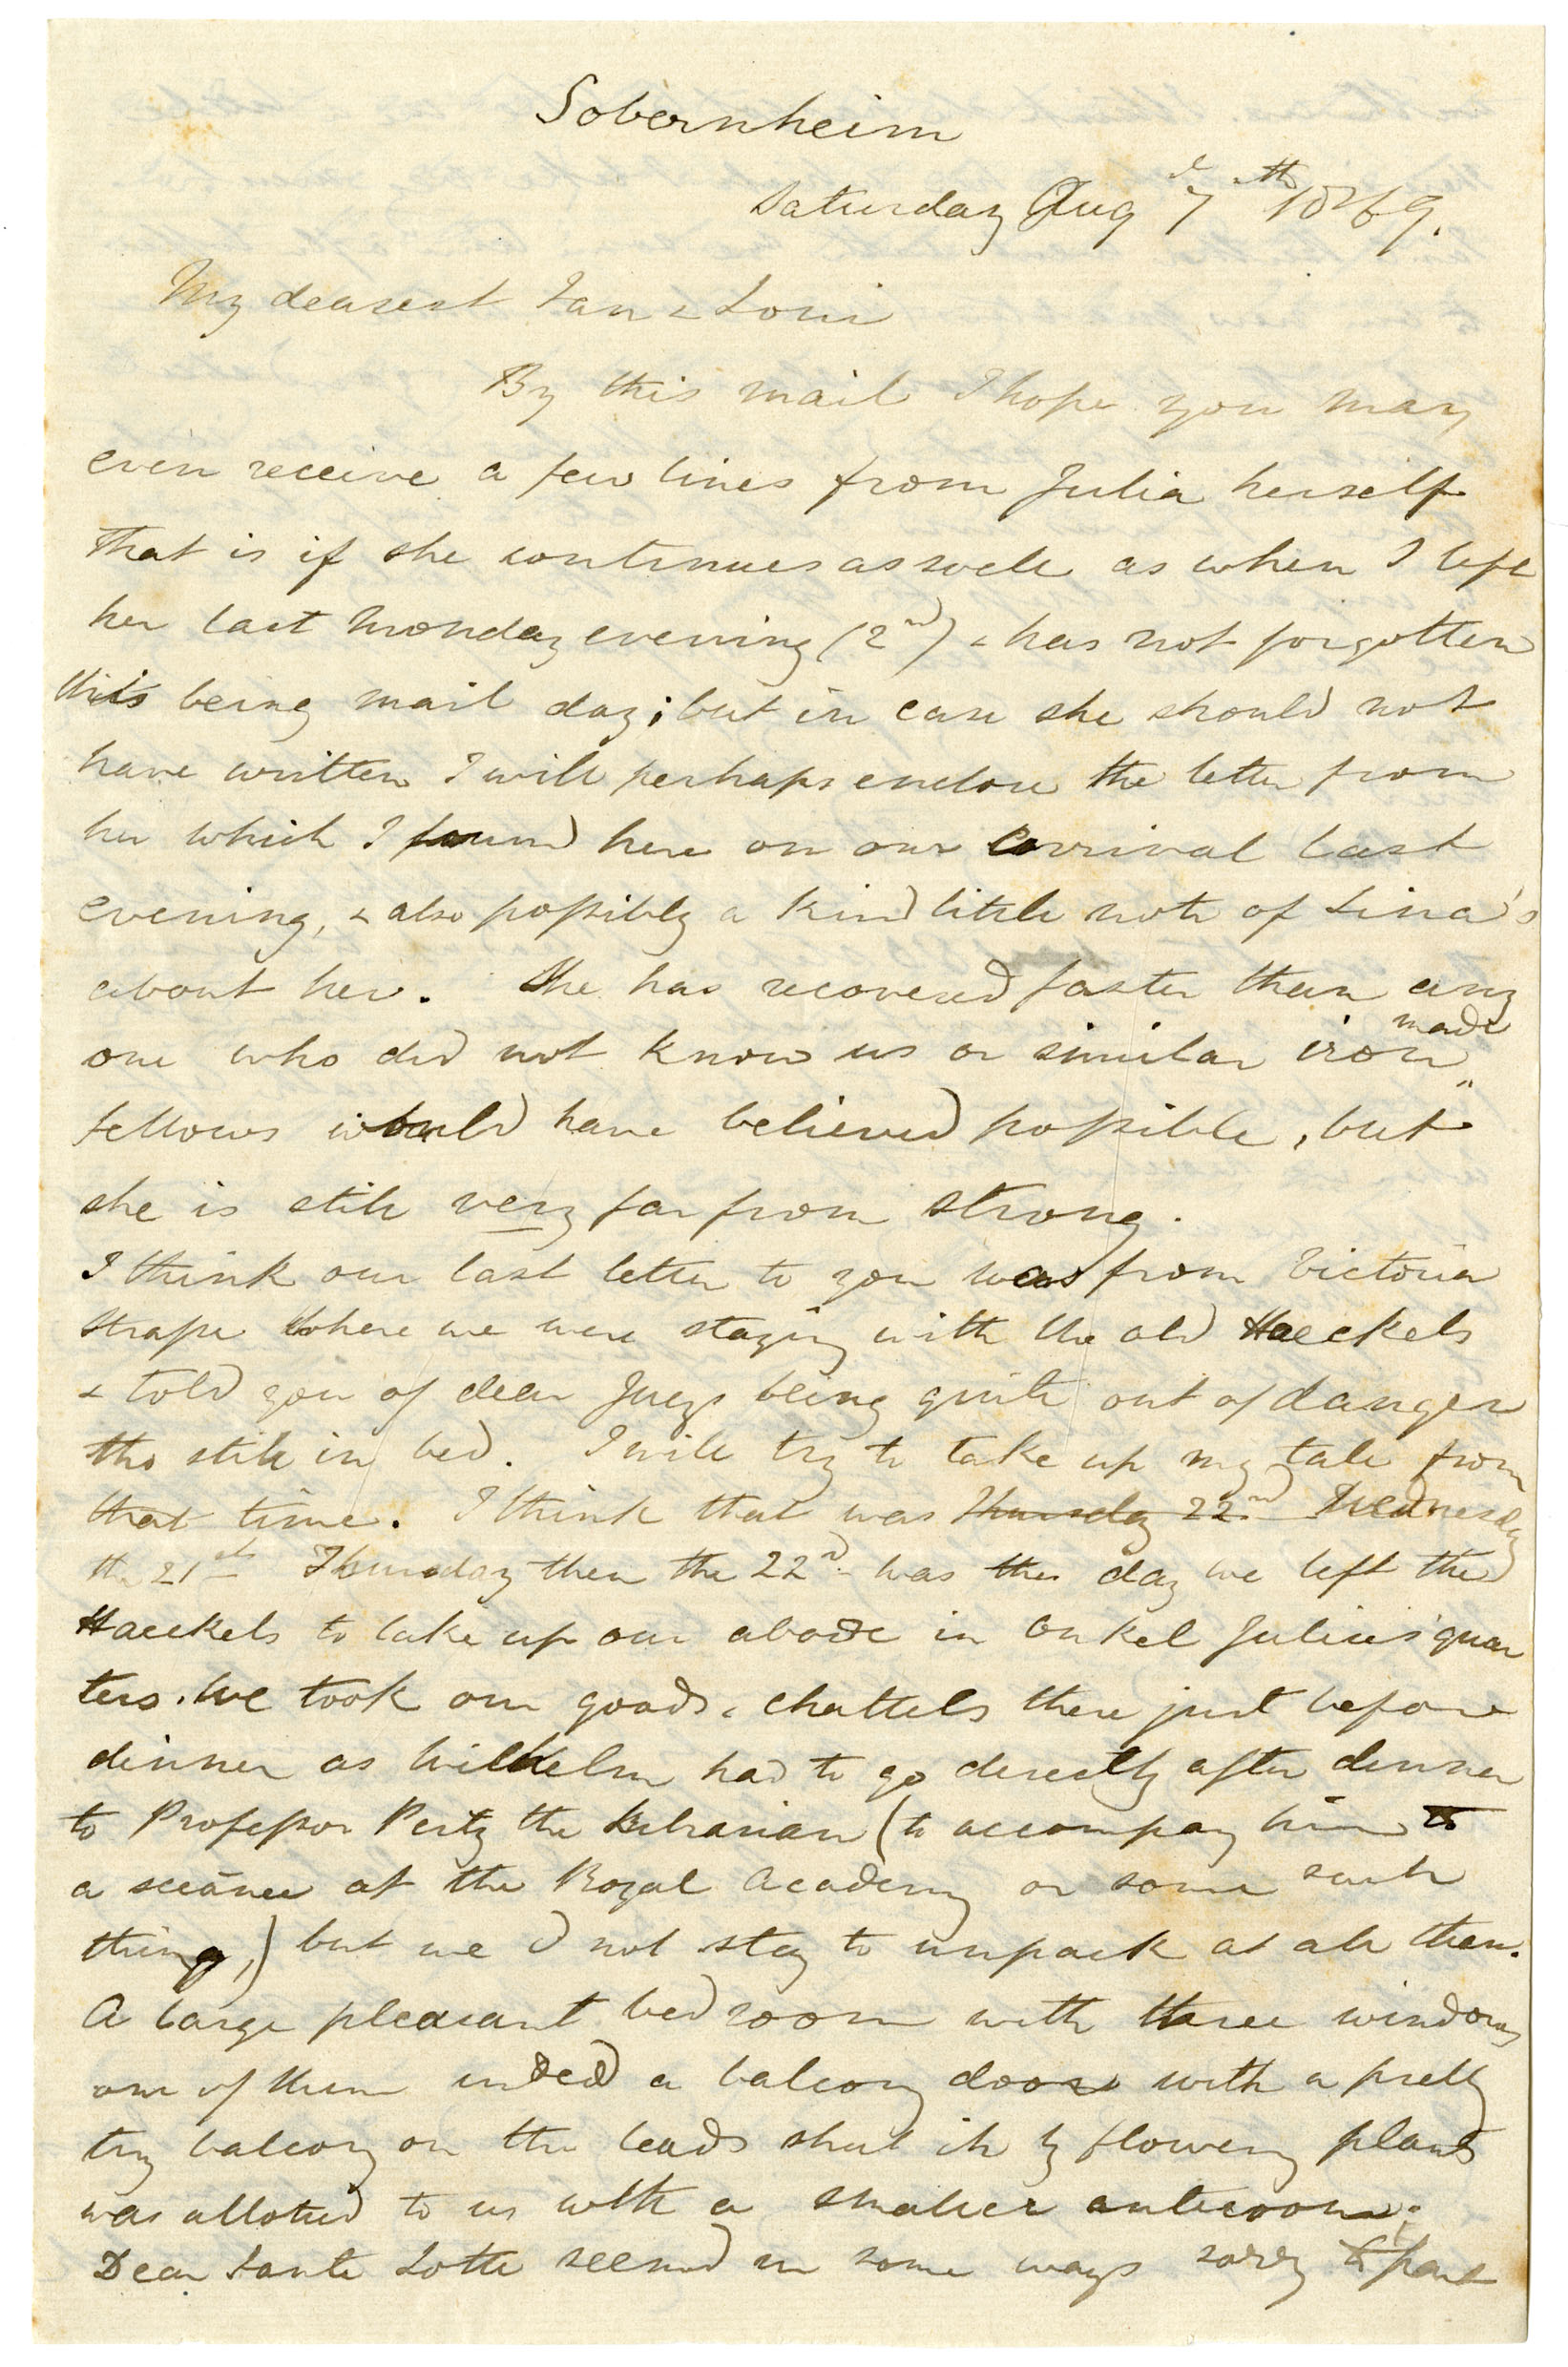 Sobernheim
Saturday Aug 7th 1869.
My dearest Ian & Loui
By this mail I hope you may
even receive a few lines from Julia herself
that is if she continues as well as when I left
her last Monday evening (2nd) & has not forgotten
this being mail day; but in case she should not
have written I will perhaps enclose the letter from
her which I found here on our arrival last
evening, & also possibly a kind little note of Lina's
about her. She has recovered faster than any
one who did not know us or similar iron made
fellows would have believed possible, but
she is still very far from strong.
I think our last letter to you was from Victoria
Strasse where we were staying with the old Haeckels
& told you of dear Jueps being quite out of danger
tho still in bed. I will try to take up my tale from
that time. I think that was Thursday 22nd Wednesday
the 21st Thursday then the 22nd was the day we left the
Haeckels to take up our abode in Onkel Julius' quar
ters. We took our goods & chattels there just before
dinner as Wilhelm had to go directly after dinner
to Professor Pertz the Librarian (to accompany him to
a sceánce at the Royal Academy or some such
thing,) but we d not stay to unpack at all then.
A large pleasant bedroom with three windows
one of them indeed a balcony door with a pretty
tiny balcony on the leads shut in by flowery plants
was allotted to us with a smaller anteroom.
Dear Tante Lotte seemed in some ways sorry to part